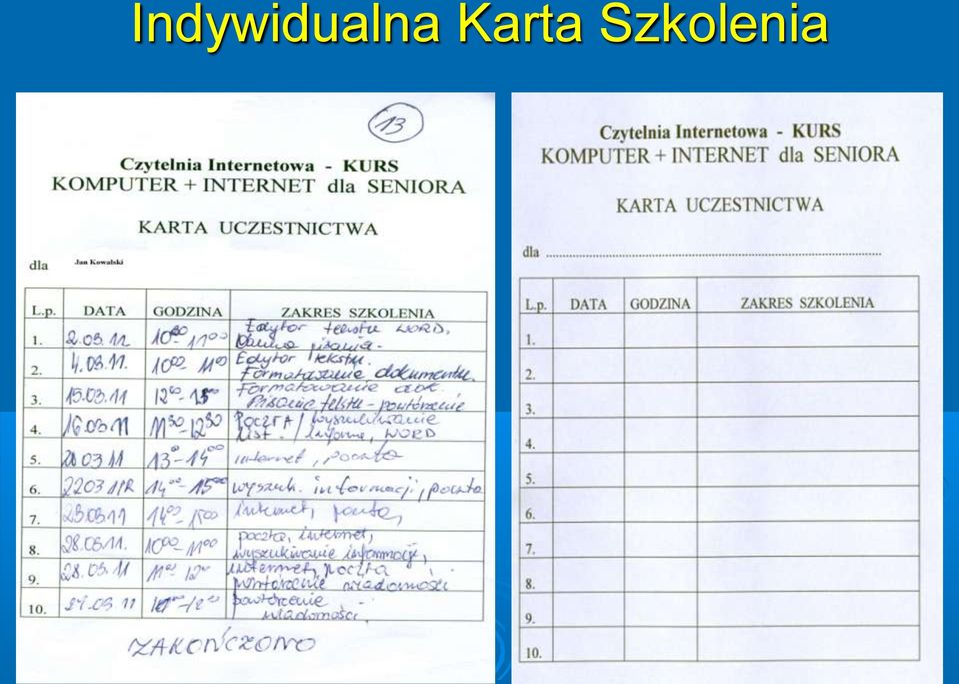 Indywidualna Karta Szkolenia
13
Czytelnia Internetowa - KURS
KOMPUTER + INTERNET dla SENIORA
KARTA UCZESTNICTWA
dla Jan Kowalski
L.p. DATA GODZINA ZAKRES SZKOLENIA
1. 2.03.11 10⁰⁰-11⁰⁰ Edytor tekstu WORD.
pisania.
2. 4.03.11. 10⁰⁰-11⁰⁰ Edytor tekstu.
Formatowanie dokumentu.
3. 15.03.11 12⁰⁰-13⁰⁰ Formatowanie dok.
Pisanie tekstu - powtórzenie
4. 16.03.11 11³⁰-12³⁰ Poczta / wyszukiwanie
list. / informa, WORD
5. 03.11 13⁰⁰-14⁰⁰ internet, poczta
6. 22.03.11R 14⁰⁰-15⁰⁰ wyszuk. informacji, poczta
7. 23.03.11 14⁰⁰-15⁰⁰ Internet, poczta,
8. 28.03.11. 10⁰⁰-11⁰⁰ poczta, internet,
wyszukiwanie informacji,
9. 28.03.11 11⁰⁰-12⁰⁰ internet, poczta
powtórzenie wiadomości
10. 03.11 powtórzenie
wiadomości.
ZAKOŃCZONO
Czytelnia Internetowa - KURS
KOMPUTER + INTERNET dla SENIORA
KARTA UCZESTNICTWA
dla
L.p. DATA GODZINA ZAKRES SZKOLENIA
1.
2.
3.
4.
5.
6.
7.
8.
9.
10.